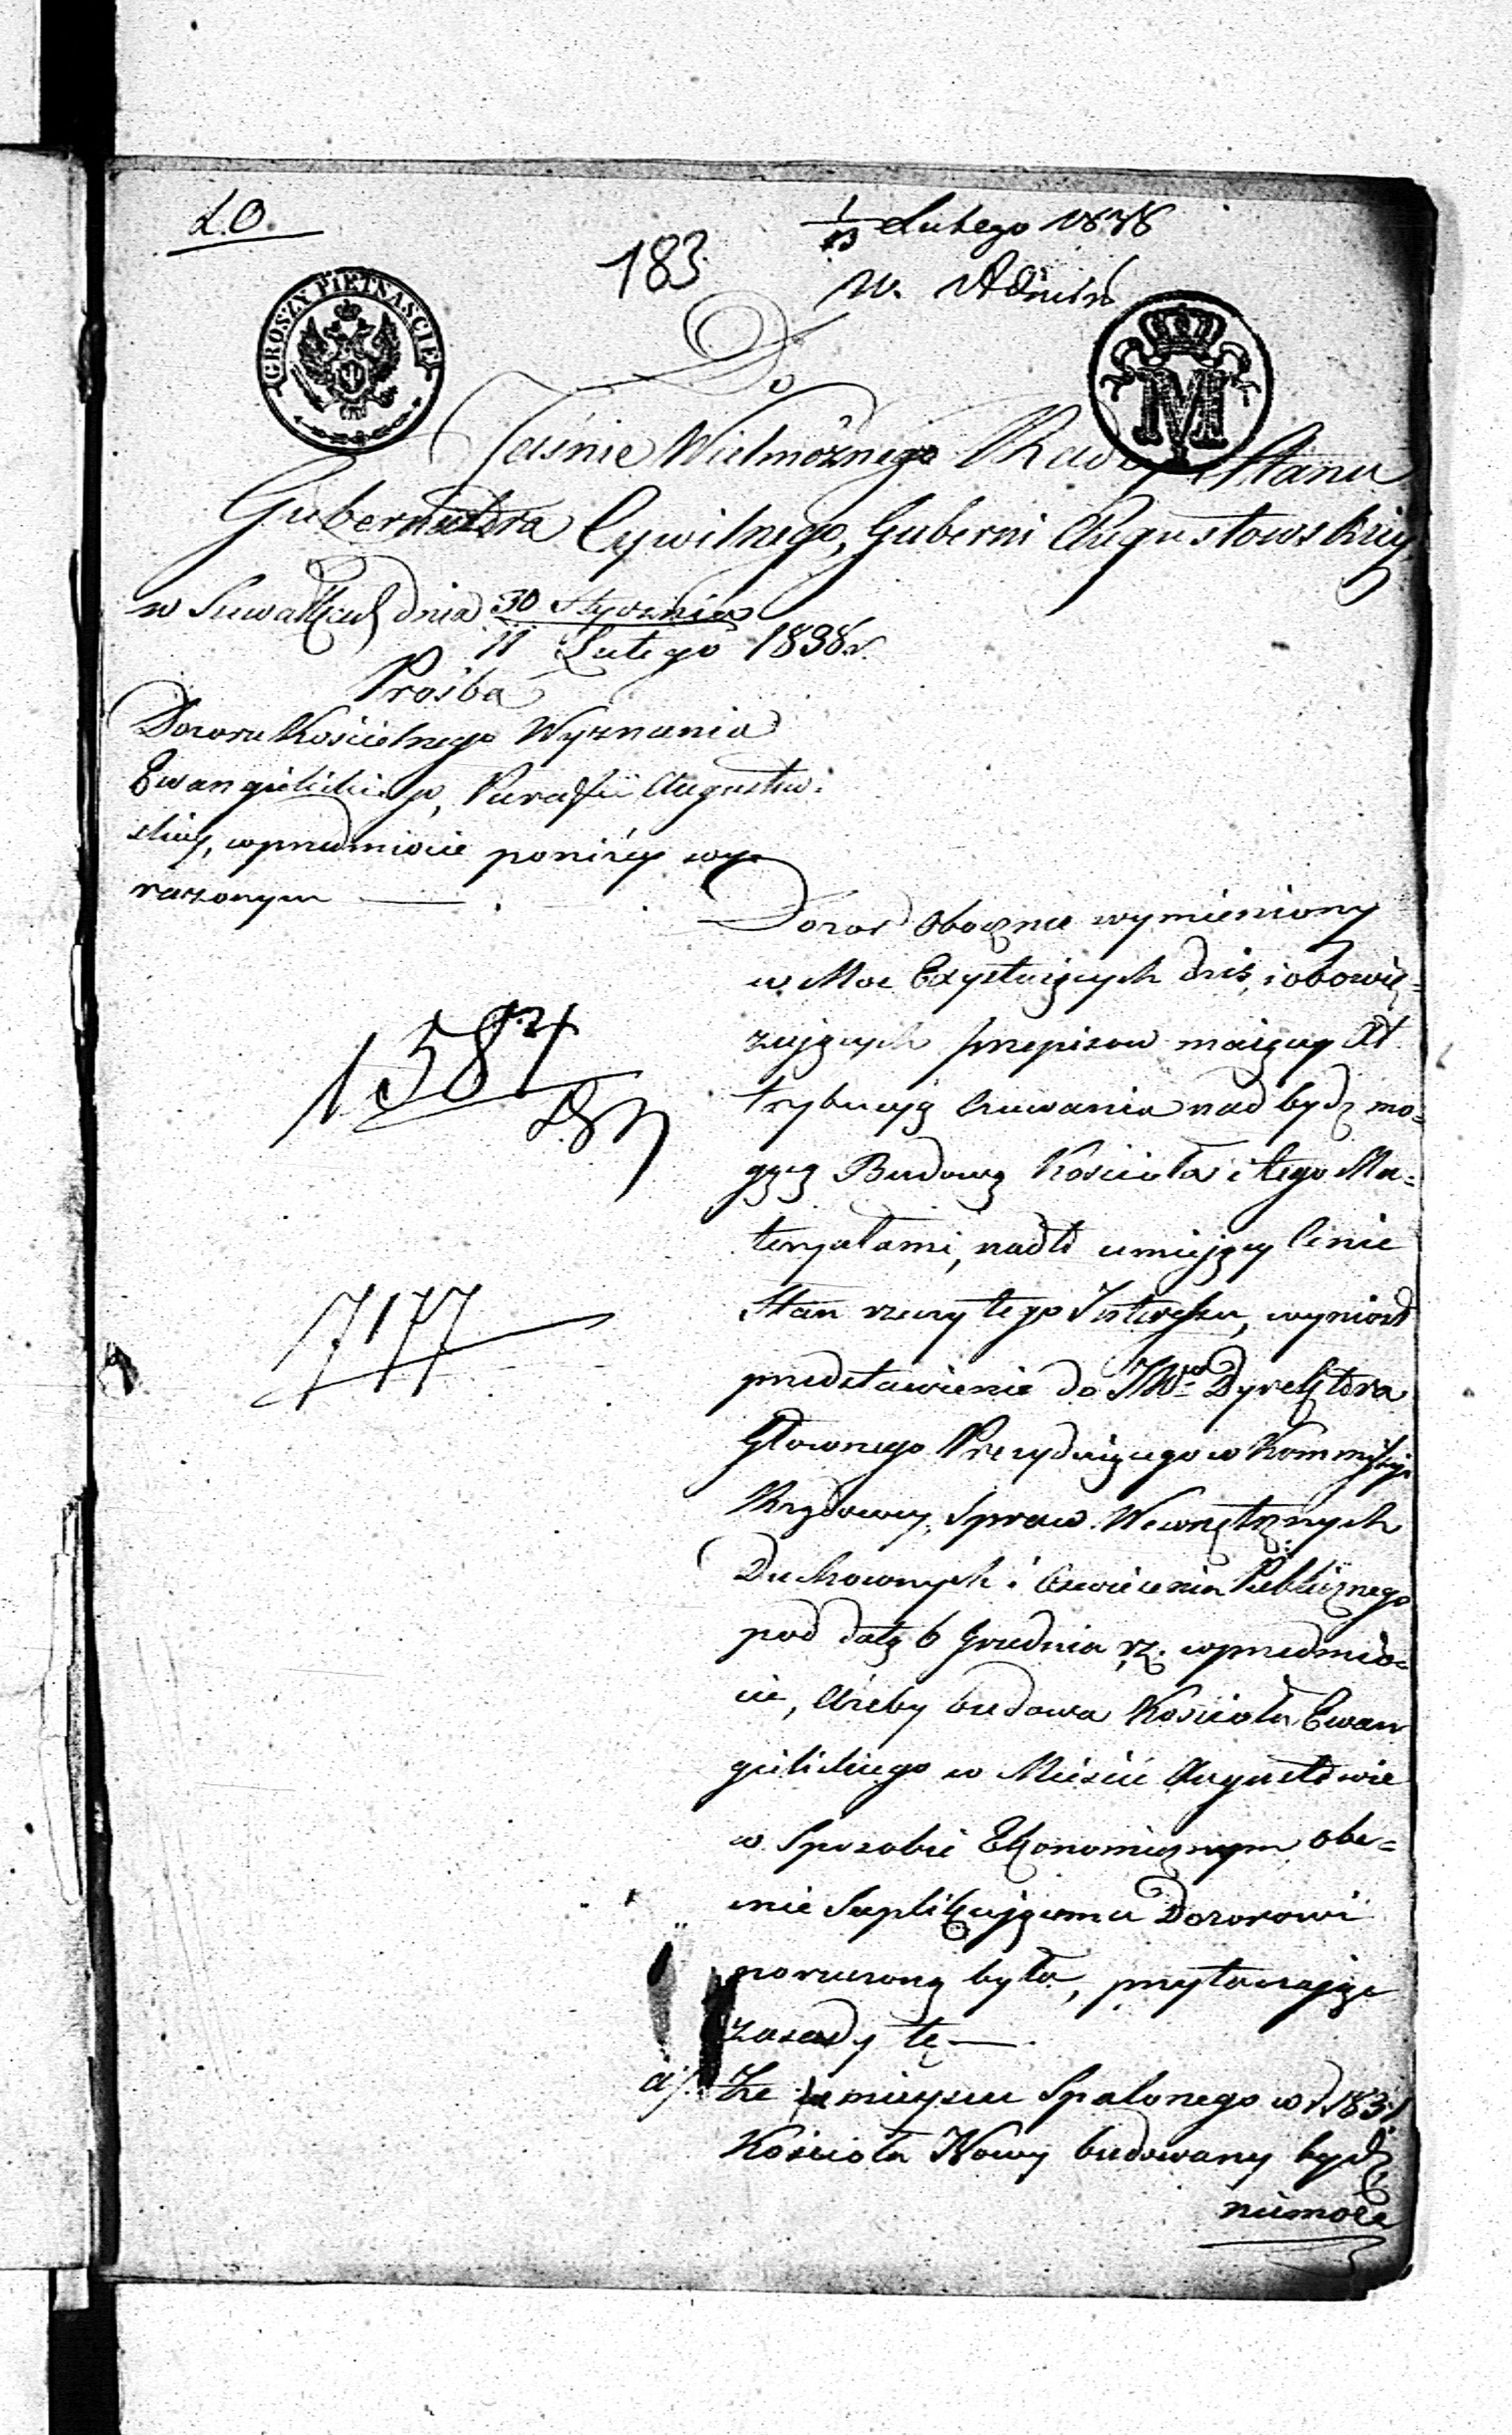 L.O.
1/13 Lutego 1838
183
W. Admin
GROSZY PIETNAŚCIE
M
Do
Jaśnie Wielmożnego Radcy Stanu
Gubernatora Cywilnego, Guberni Augustowskiey
w Suwałkach dnia 30 Stycznia
11 Lutego 1838 r.
Prośba
Dozoru Kościelnego Wyznania
Ewangielickiego, Parafii Augustow:
skiey, wprzedmiocie poniżey wy
rażonym
Dozor Obocznie wymieniony
w Moc Exystuiących dziś, i obowię=
zujących przepisow maiący At
trybucyą Czuwania nad bydź mo=
gącą Budową Kościoła i tego Ma=
teryałami, nadto umiejący Cenić
Stan rzeczy tego Interessu, wyniosł
przedstawienie do JWgo Dyrektora
Głownego Prezyduiącego w Kommissyi
Rządowey, Spraw Wewnętrznych
Duchownych i Oswiecenia Publicznego
pod datą 6 Grudnia rz. wprzedmio=
cie, ażeby budowa Kościoła Ewan
gielickiego w Mieście Augustowie
w Sposobie Ekonomicznym obe=
cnie Suplikującemu Dozorowi
poruczoną była, przytaczając
zasady te —
a/. Że w mieyscu Spalonego w r. 1831
Kościoła Nowy budowany bydź
niemoże
1587
7177